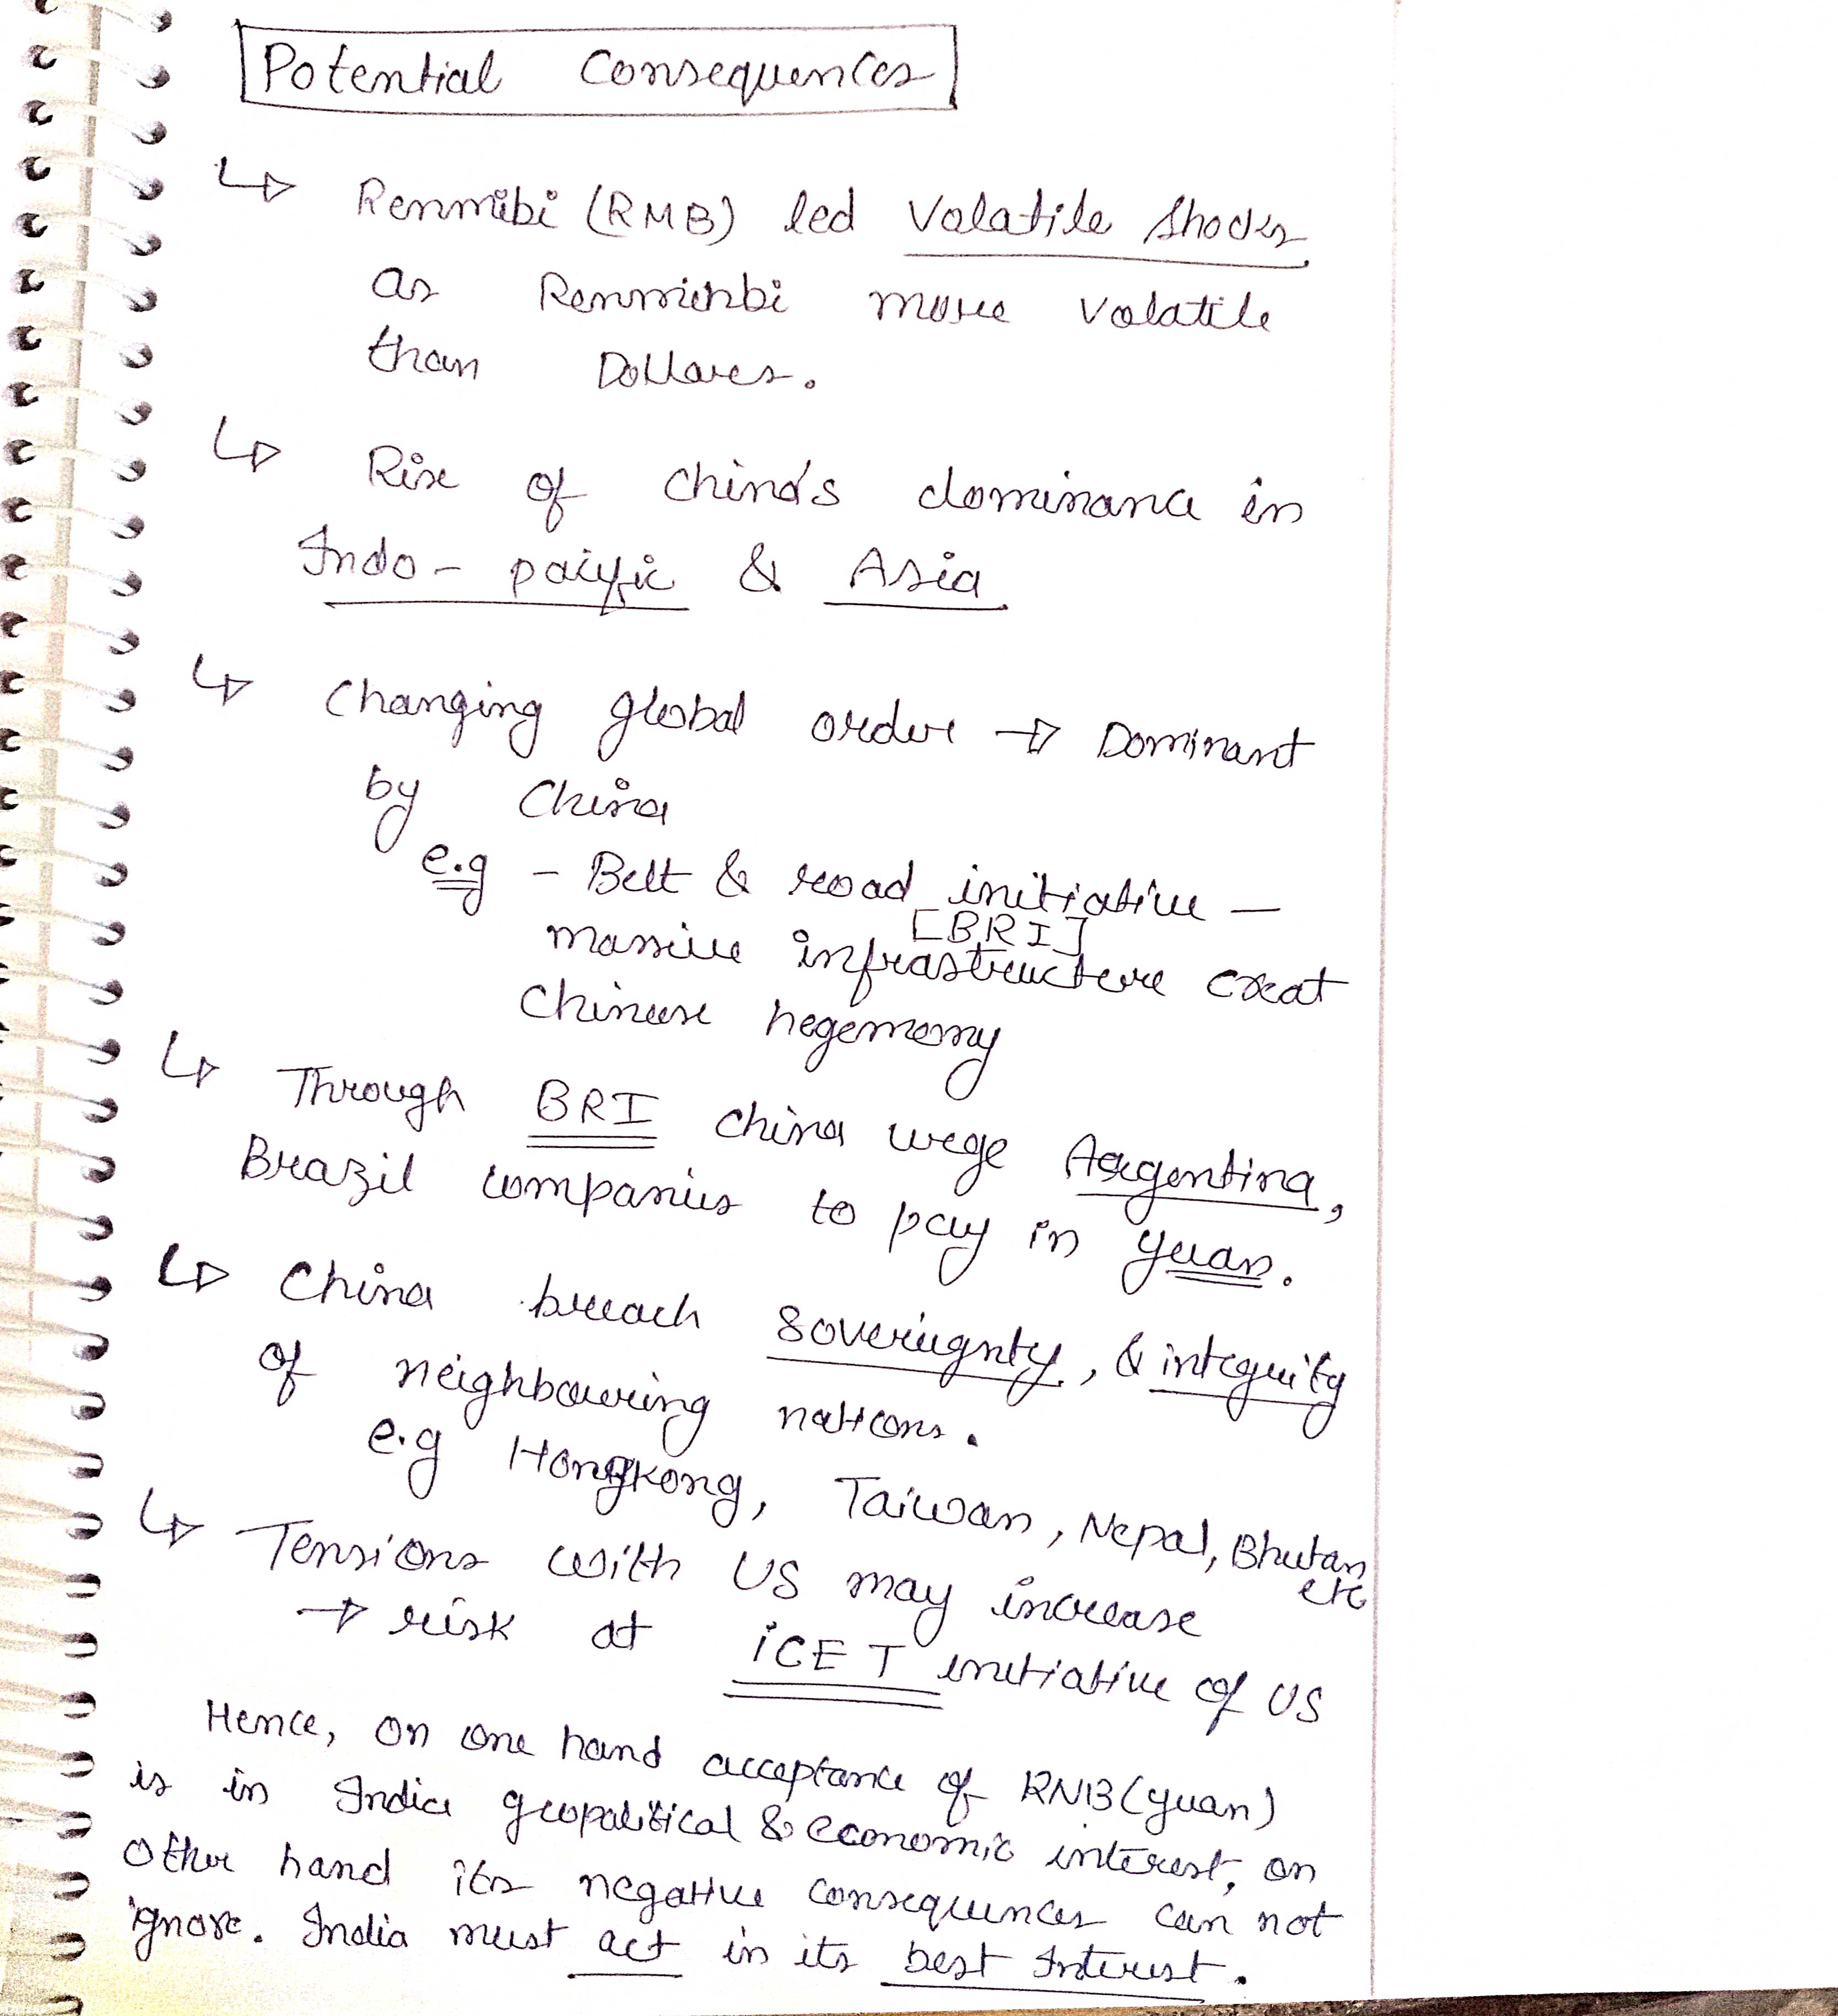 Potential Consequences
↳ Renmibi (RMB) led Volatile Shocks
as Renminbi more volatile
than Dollars.
↳ Rise of China's dominance in
Indo-pacific & Asia
↳ Changing global order → Dominant
by China
e.g - Belt & road initiative -
[BRI]
massive infrastructure creat
Chinese hegemony
↳ Through BRI China urge Argentina,
Brazil companies to pay in yuan.
↳ China breach Sovereignty, & integrity
of neighbouring nations.
e.g Hongkong, Taiwan, Nepal, Bhutan
etc
↳ Tensions with US may increase
→ risk at iCET initiative of US
Hence, on one hand acceptance of RNB (yuan)
is in India geopolitical & economic interest, on
other hand its negative consequences can not
ignore. India must act in its best Interest.